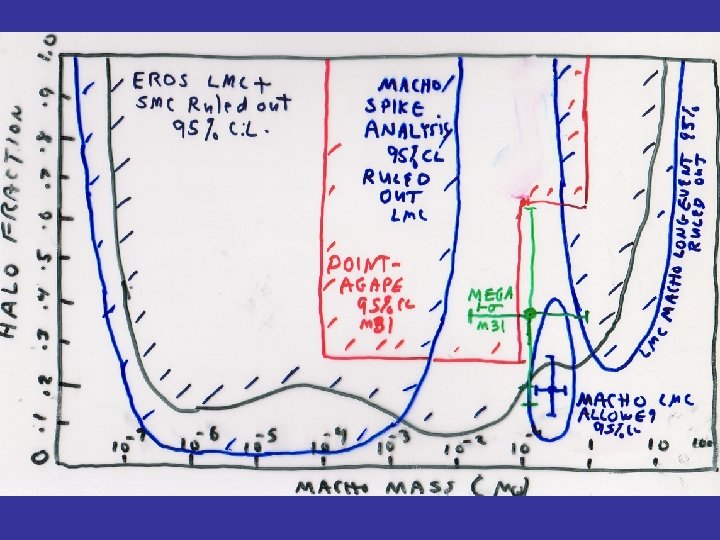 EROS LMC +
SMC Ruled out
95% C.L.
MACHO/
SPIKE
ANALYSIS
95% CL
RULED
OUT
LMC
LMC MACHO LONG-EVENT 95%
RULED OUT
POINT-
AGAPE
95% CL
M31
MEGA
1-σ
M31
MACHO LMC
ALLOWED
95% CL
HALO FRACTION
1.0
.9
.8
.7
.6
.5
.4
.3
.2
.1
0
10⁻⁷ 10⁻⁶ 10⁻⁵ 10⁻⁴ 10⁻³ 10⁻² 10⁻¹ 1 10 100
MACHO MASS (M⊙)